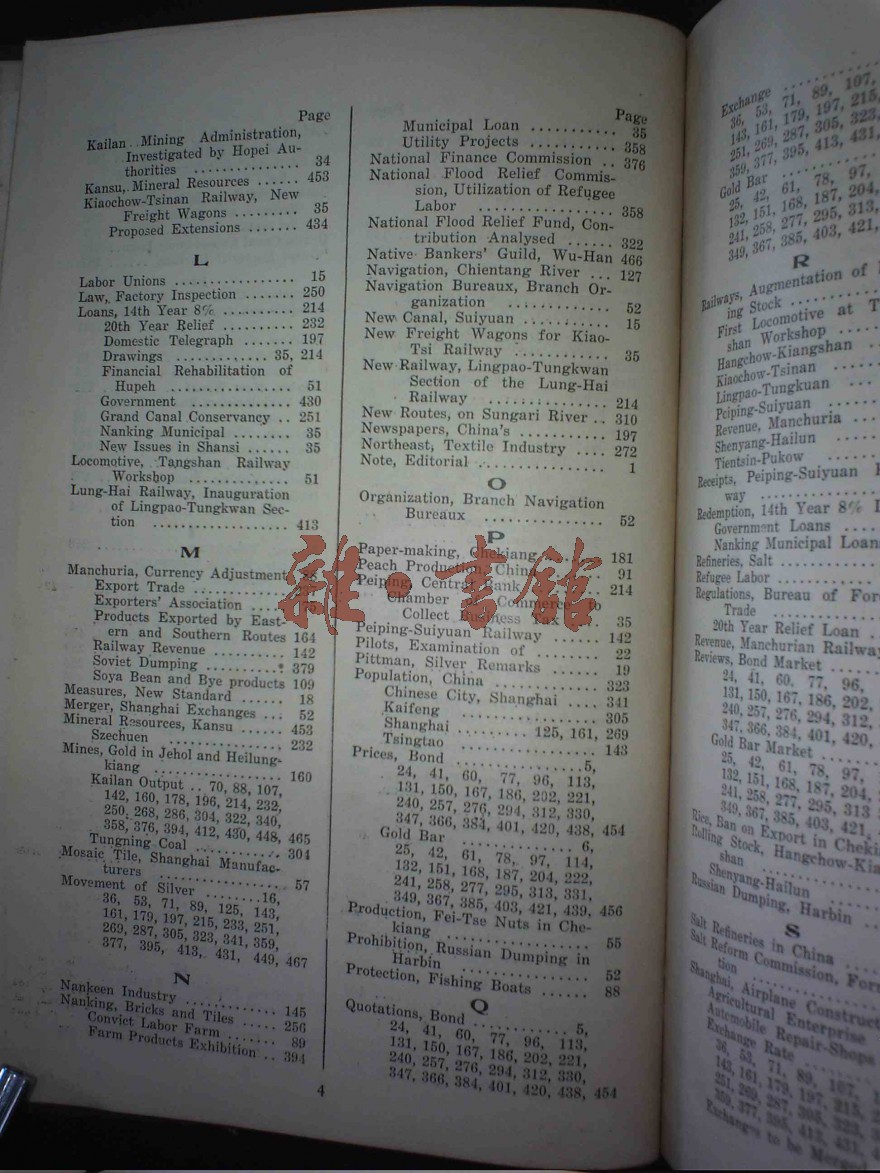 Page
Kailan Mining Administration,
Investigated by Hopei Au-
thorities ............... 34
Kansu, Mineral Resources ...... 453
Kiaochow-Tsinan Railway, New
Freight Wagons ......... 35
Proposed Extensions ....... 434
L
Labor Unions ................. 15
Law, Factory Inspection ....... 250
Loans, 14th Year 8% .......... 214
20th Year Relief .......... 232
Domestic Telegraph ....... 197
Drawings ............. 35, 214
Financial Rehabilitation of
Hupeh ................. 51
Government ............. 430
Grand Canal Conservancy .. 251
Nanking Municipal ........ 35
New Issues in Shansi ...... 35
Locomotive, Tangshan Railway
Workshop ............... 51
Lung-Hai Railway, Inauguration
of Lingpao-Tungkwan Sec-
tion ................... 413
M
Manchuria, Currency Adjustment
Export Trade
Exporters' Association
Products Exported by East-
ern and Southern Routes 164
Railway Revenue .......... 142
Soviet Dumping ........... 379
Soya Bean and Bye products 109
Measures, New Standard ...... 18
Merger, Shanghai Exchanges ... 52
Mineral Resources, Kansu ...... 453
Szechuen ............... 232
Mines, Gold in Jehol and Heilung-
kiang .................. 160
Kailan Output .. 70, 88, 107,
142, 160, 178, 196, 214, 232,
250, 268, 286, 304, 322, 340,
358, 376, 394, 412, 430, 448, 465
Tungning Coal ............ 304
Mosaic Tile, Shanghai Manufac-
turers .................. 57
Movement of Silver ........16,
36, 53, 71, 89, 125, 143,
161, 179, 197, 215, 233, 251,
269, 287, 305, 323, 341, 359,
377, 395, 413, 431, 449, 467
N
Nankeen Industry ............ 145
Nanking, Bricks and Tiles ..... 256
Convict Labor Farm ....... 89
Farm Products Exhibition .. 394
Page
Municipal Loan ........... 35
Utility Projects ........... 358
National Finance Commission .. 376
National Flood Relief Commis-
sion, Utilization of Refugee
Labor ................ 358
National Flood Relief Fund, Con-
tribution Analysed ...... 322
Native Bankers' Guild, Wu-Han 466
Navigation, Chientang River ... 127
Navigation Bureaux, Branch Or-
ganization ............. 52
New Canal, Suiyuan ........... 15
New Freight Wagons for Kiao-
Tsi Railway ............ 35
New Railway, Lingpao-Tungkwan
Section of the Lung-Hai
Railway ............... 214
New Routes, on Sungari River .. 310
Newspapers, China's ........... 197
Northeast, Textile Industry .... 272
Note, Editorial ................ 1
O
Organization, Branch Navigation
Bureaux ............... 52
P
Paper-making, Chekiang ....... 181
Peach Production, China 91
Peiping, Central Bank 214
Chamber of Commerce to
Collect Business Tax 35
Peiping-Suiyuan Railway ...... 142
Pilots, Examination of ......... 22
Pittman, Silver Remarks ...... 19
Population, China ............. 323
Chinese City, Shanghai .... 341
Kaifeng ................. 305
Shanghai ......... 125, 161, 269
Tsingtao ................. 143
Prices, Bond ................5,
24, 41, 60, 77, 96, 113,
131, 150, 167, 186, 202, 221,
240, 257, 276, 294, 312, 330,
347, 366, 384, 401, 420, 438, 454
Gold Bar ............... 6,
25, 42, 61, 78, 97, 114,
132, 151, 168, 187, 204, 222,
241, 258, 277, 295, 313, 331,
349, 367, 385, 403, 421, 439, 456
Production, Fei-Tse Nuts in Che-
kiang .................. 55
Prohibition, Russian Dumping in
Harbin ................. 52
Protection, Fishing Boats ...... 88
Q
Quotations, Bond .............. 5,
24, 41, 60, 77, 96, 113,
131, 150, 167, 186, 202, 221,
240, 257, 276, 294, 312, 330,
347, 366, 384, 401, 420, 438, 454
4
Exchange
36, 53, 71, 89, 107,
143, 161, 179, 197, 215,
251, 269, 287, 305, 323,
359, 377, 395, 413, 431,
Gold Bar
25, 42, 61, 78, 97,
132, 151, 168, 187, 204,
241, 258, 277, 295, 313,
349, 367, 385, 403, 421,
R
Railways, Augmentation of
ing Stock
First Locomotive at
shan Workshop
Hangchow-Kiangshan
Kiaochow-Tsinan
Lingpao-Tungkuan
Peiping-Suiyuan
Revenue, Manchuria
Shenyang-Hailun
Tientsin-Pukow
Receipts, Peiping-Suiyuan
way
Redemption, 14th Year 8%
Government Loans
Nanking Municipal Loan
Refineries, Salt
Refugee Labor
Regulations, Bureau of
Trade
20th Year Relief Loan
Revenue, Manchurian
Reviews, Bond Market
24, 41, 60, 77, 96,
131, 150, 167, 186, 202,
240, 257, 276, 294, 312,
347, 366, 384, 401, 420,
Gold Bar Market
25, 42, 61, 78, 97,
132, 151, 168, 187, 204,
241, 258, 277, 295, 313
349, 367, 385, 403, 421,
Rice, Ban on Export in
Rolling Stock,
shan
Shenyang-Hailun
Russian Dumping, Harbin
S
Salt Refineries in China
Salt Reform Commission,
tion
Shanghai, Airplane
Agricultural Enterprise
Automobile Repair-Shops
Exchange Rate
36, 53, 71, 89, 107,
143, 161, 179, 197, 215,
251, 269, 287, 305, 323,
359, 377, 395, 413, 431,
Exchanges to be
雜·書館